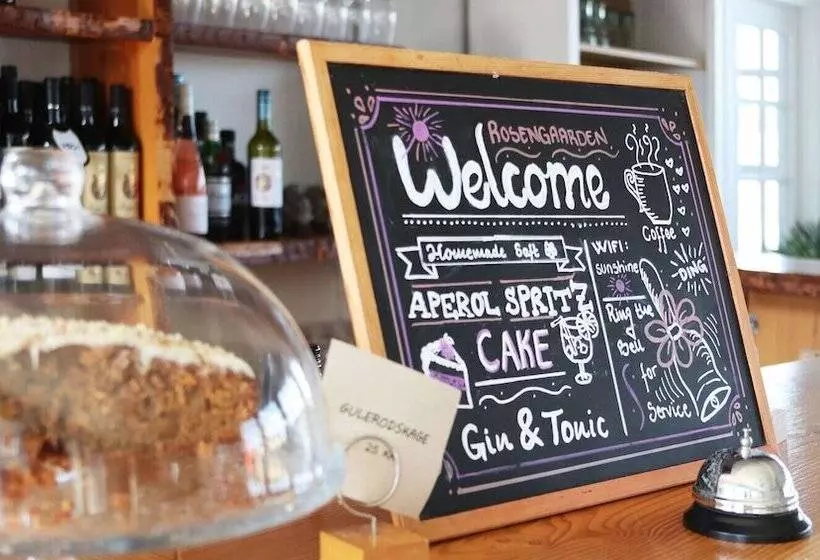 ROSENGAARDEN
Welcome
Coffee
Homemade Saft
APEROL SPRITZ
CAKE
Gin & Tonic
WIFI:
sunshine
Ring the
Bell
for
Service
DING
GULERODSKAGE
25 KR